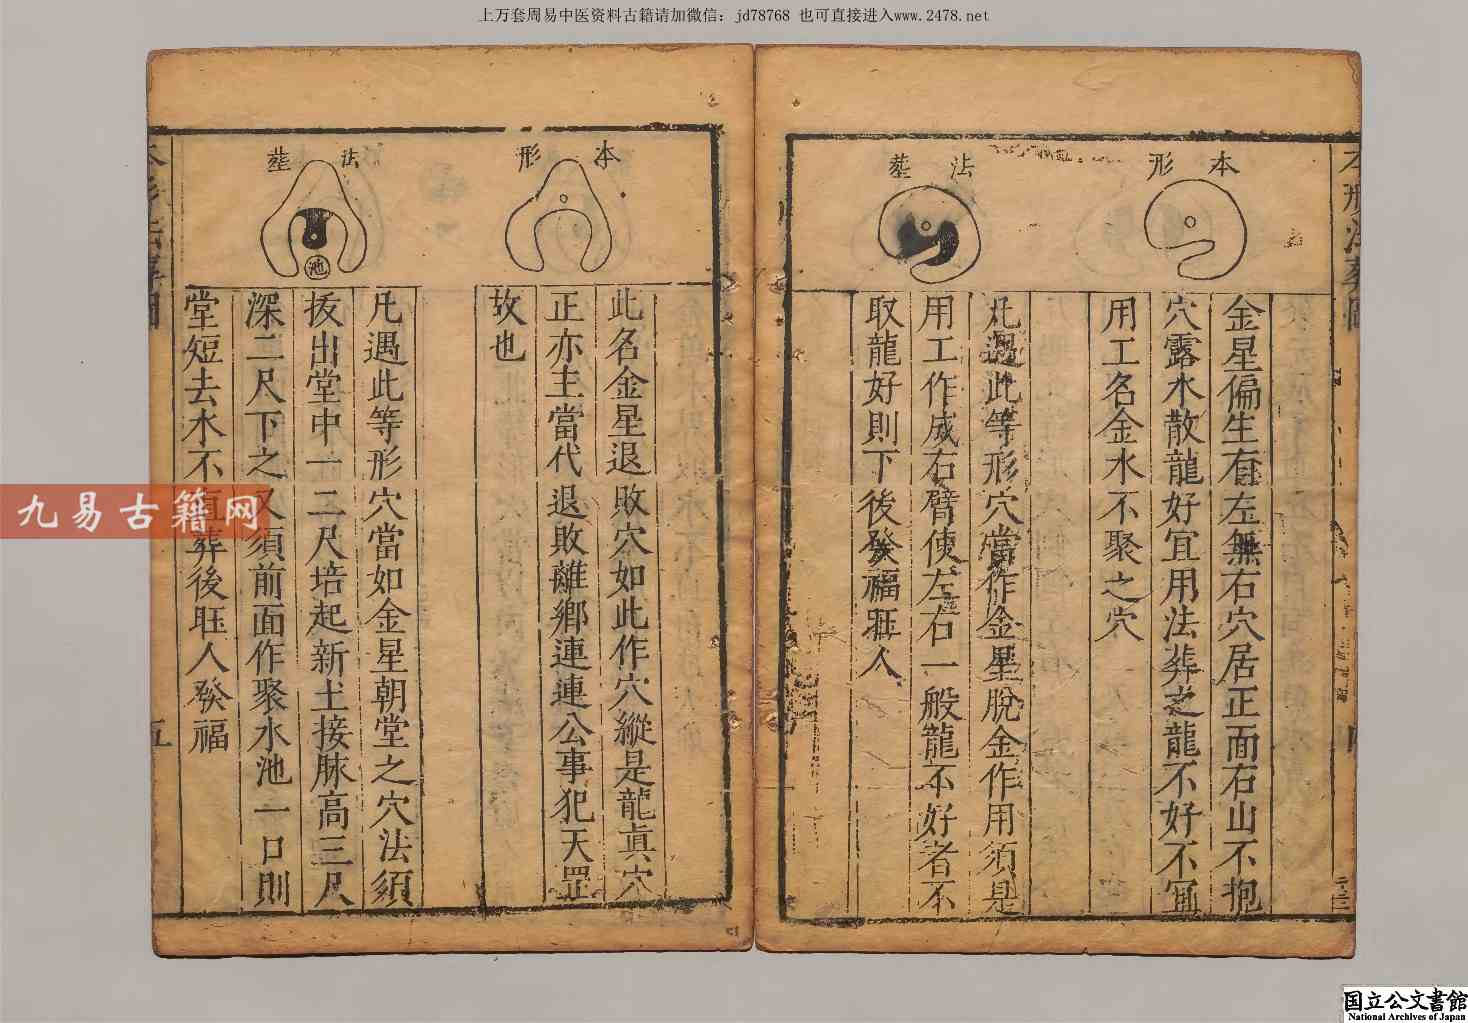 上万套周易中医资料古籍请加微信：jd78768 也可直接进入www.2478.net
本形
金星偏生有左無右穴居正面右山不抱
穴露水散龍好宜用法葬之龍不好不宜
用工名金水不聚之穴
法葬
凡遇此等形穴當作金星脫金作用須是
用工作成右臂使左右一般龍不好者不
取龍好則下後發福旺人
本形
此名金星退敗穴如此作穴縱是龍眞穴
正亦主當代退敗離鄉連連公事犯天罡
故也
法葬
池
凡遇此等形穴當如金星朝堂之穴法須
扳出堂中一二尺培起新土接脉高三尺
深二尺下之又須前面作聚水池一口則
堂短去水不直葬後旺人發福
五
九易古籍网
国立公文書館
National Archives of Japan